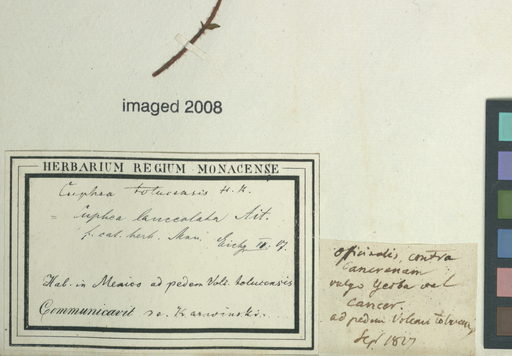 imaged 2008
HERBARIUM REGIUM MONACENSE
Cuphea tolucensis H. K.
= Cuphea lanceolata Ait.
f. cat. herb. Mon.
Hab. in Mexico ad pedem Volc. tolucensis
Communicavit de. Karwinski.
officinalis, contra
Cancrenam
vulgo Yerba del
Cancer.
ad pedem Volcani toluc
Sept 1827